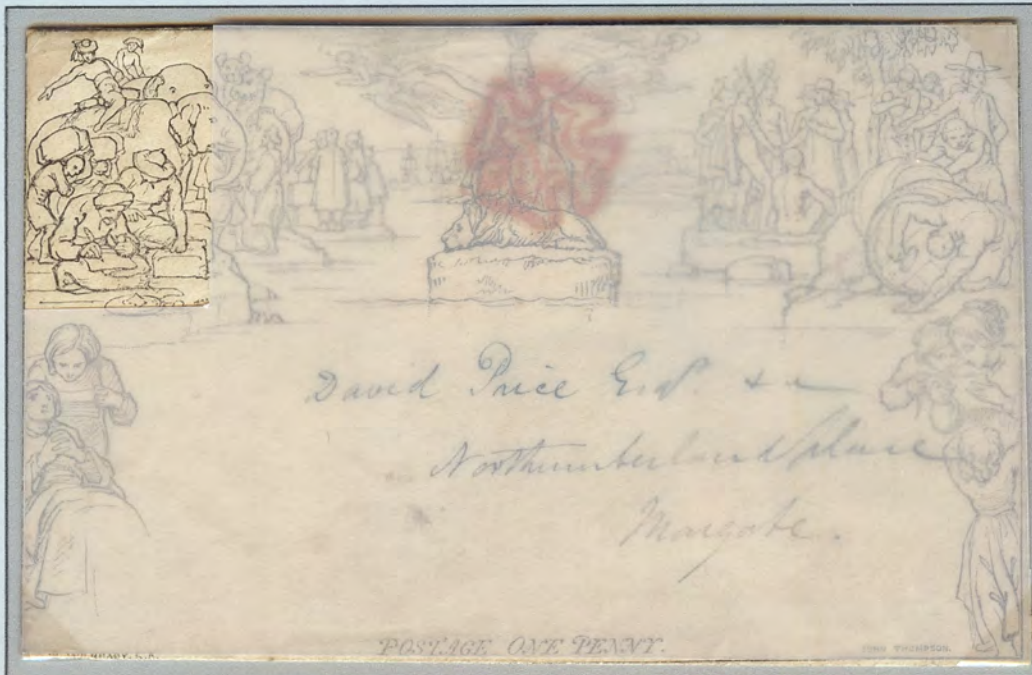 David Price Esqr. &c
Northumberland Place
Margate.
POSTAGE ONE PENNY.
JOHN THOMPSON.